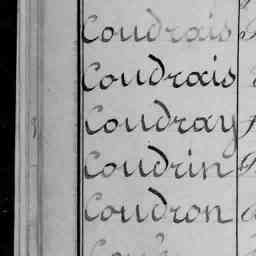 Coudrais
Coudrais
Coudray
Coudrin
Coudron